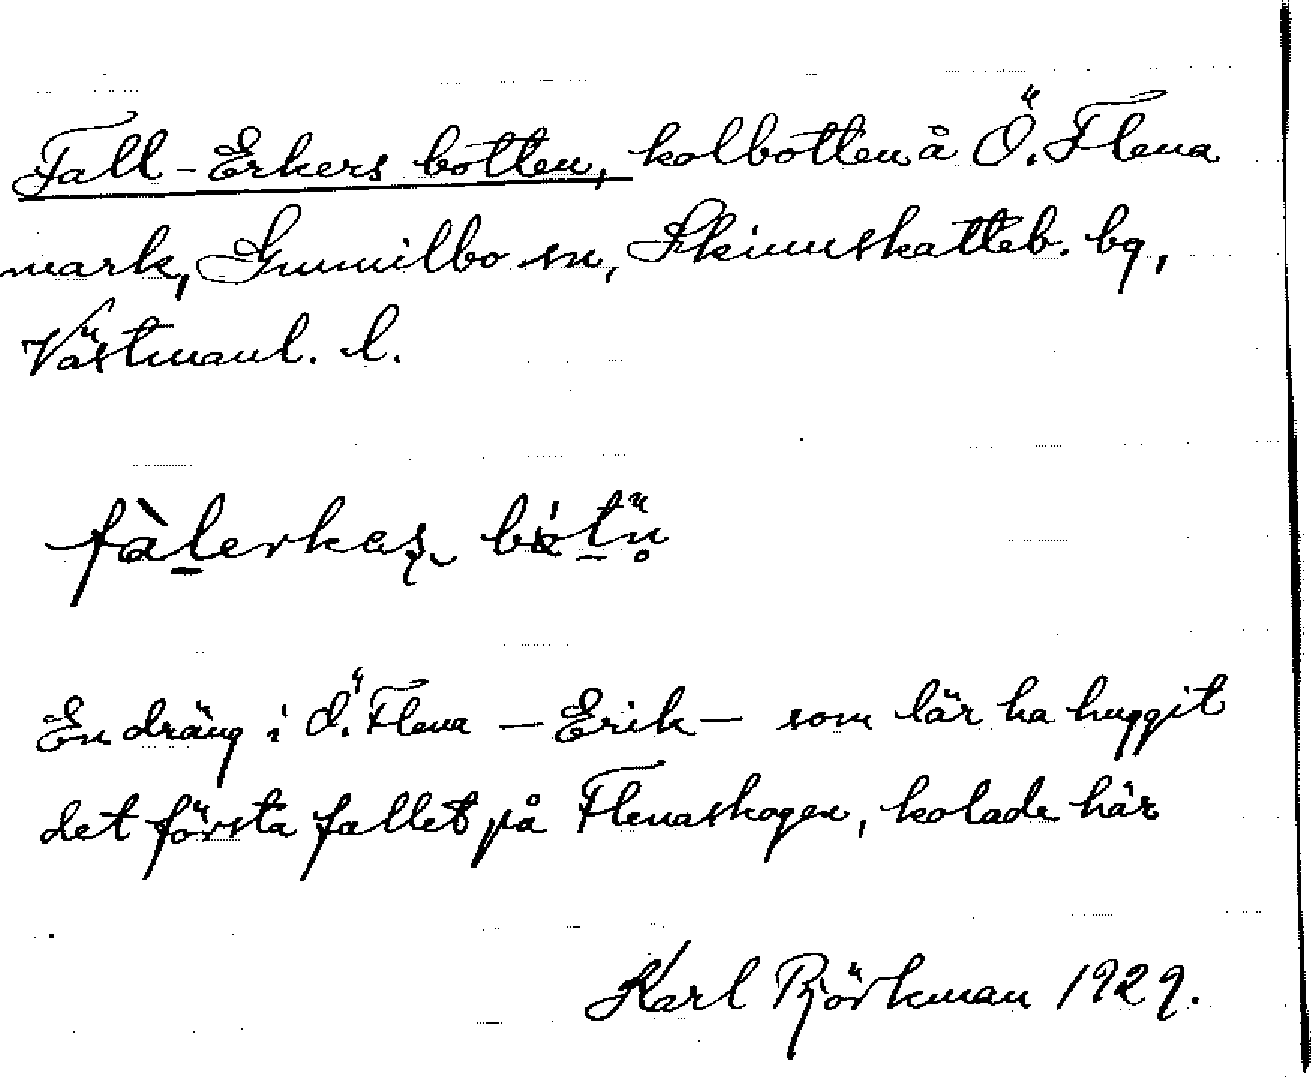 Fall-Erkers botten, kolbotten å Ö. Flena
mark, Gunnilbo sn, Skinnskatteb. bg,
Västmanl. l.
fàlerkas botn
En dräng i Ö. Flena — Erik — som lär ha huggit
det första fallet på Flenaskogen, kolade här
Karl Björkman 1929.